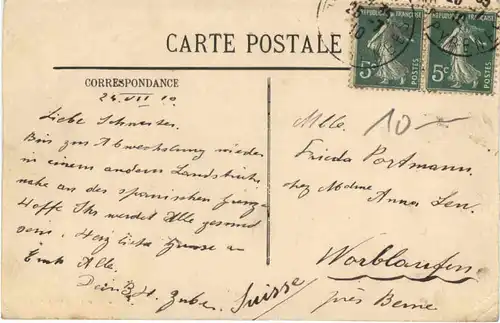 CARTE POSTALE
CORRESPONDANCE
24. VII 10
Liebe Schwester.
Bin zur Abwechslung wieder
in einem andern Landstrich
nahe an der spanischen Grenze
Hoffe Ihr werdet Alle gesund
sein. Herzliche Grüsse an
Euch Alle.
Dein
RÉPUBLIQUE FRANÇAISE
5c POSTES
5c POSTES
10-
Mlle.
Frieda Portmann.
chez Mdme
Anna
Worblaufen
près Berne
Suisse